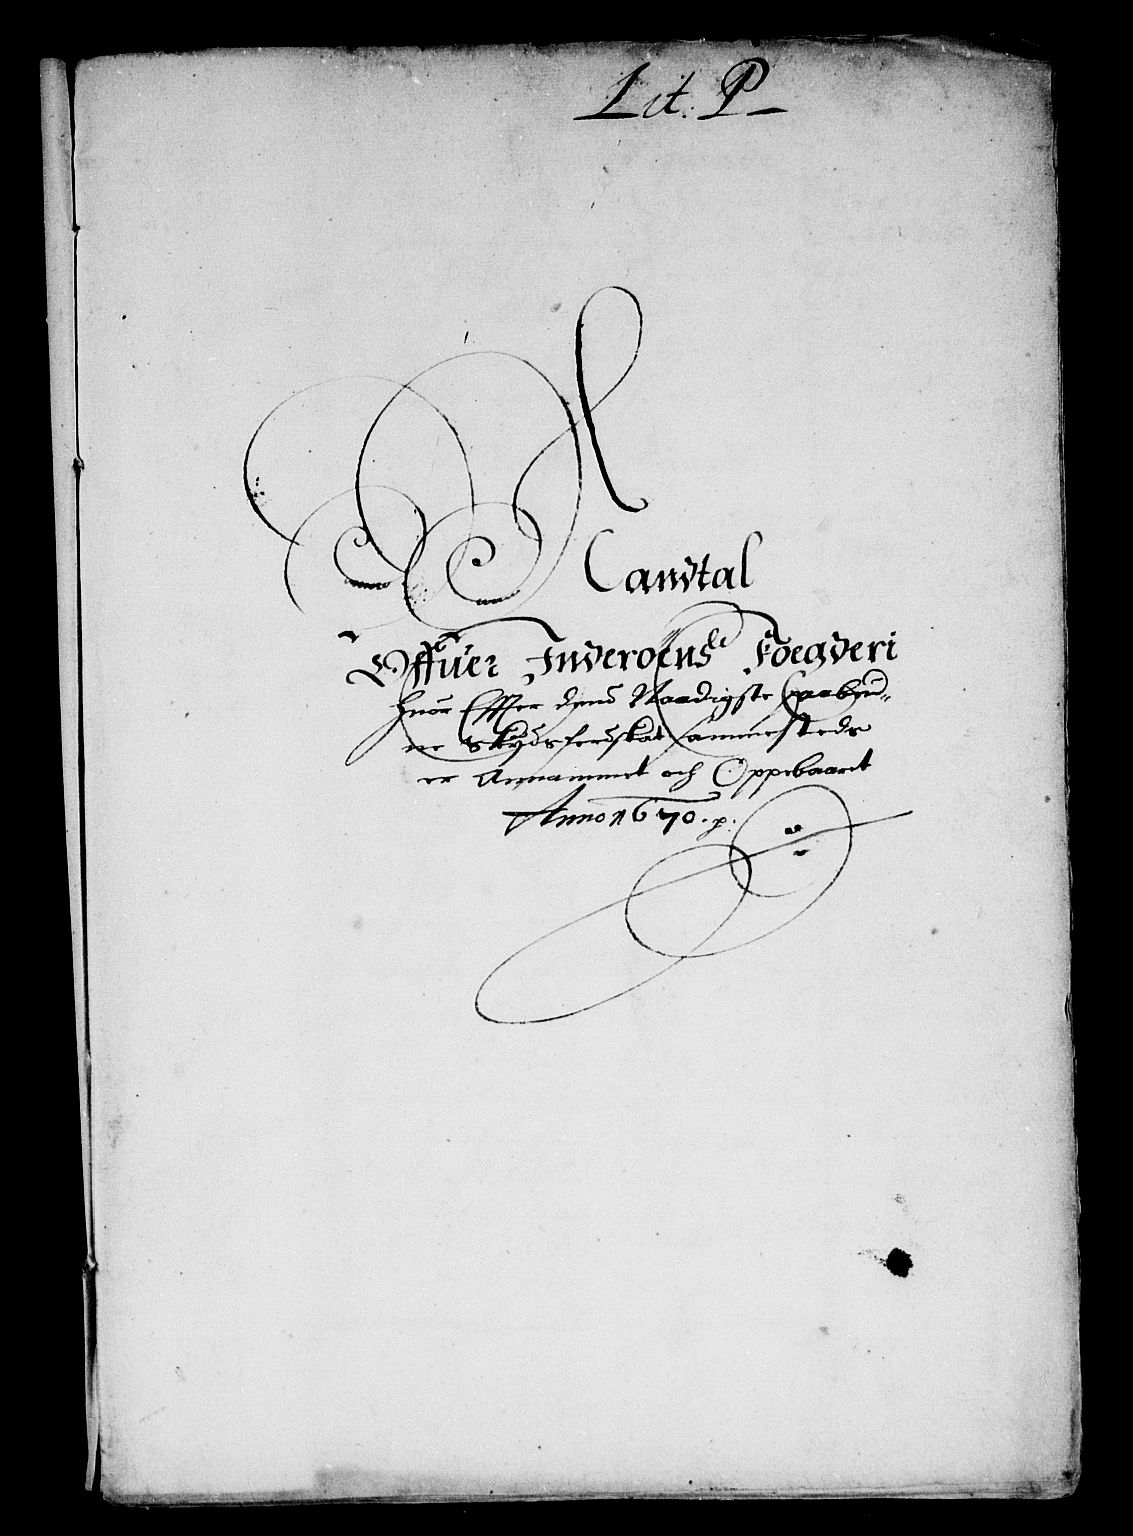 Lit. P
Mandtal
Offuer Inderoens Foegderi
Huor Effter dend Naadigste paabud¬
ne Skydsferdskat sammesteds
er Annammet och Oppebaaret
Anno 1670. p: